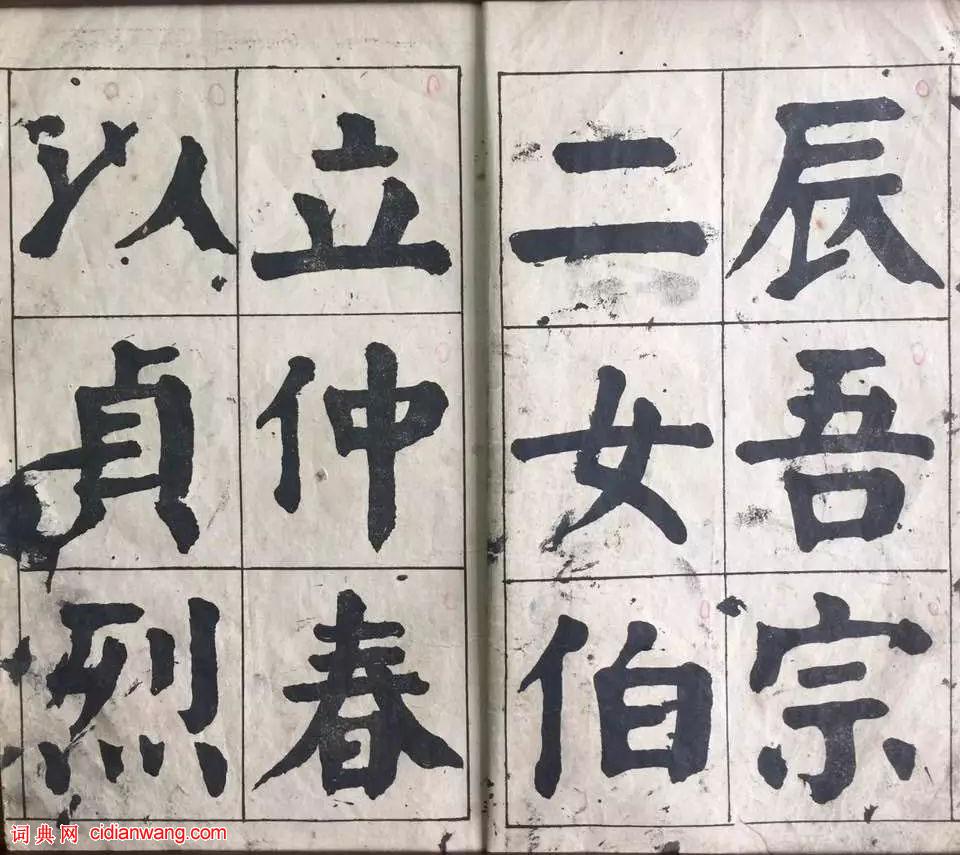 辰吾宗
二女伯
立仲春
以貞烈
词典网 cidianwang.com